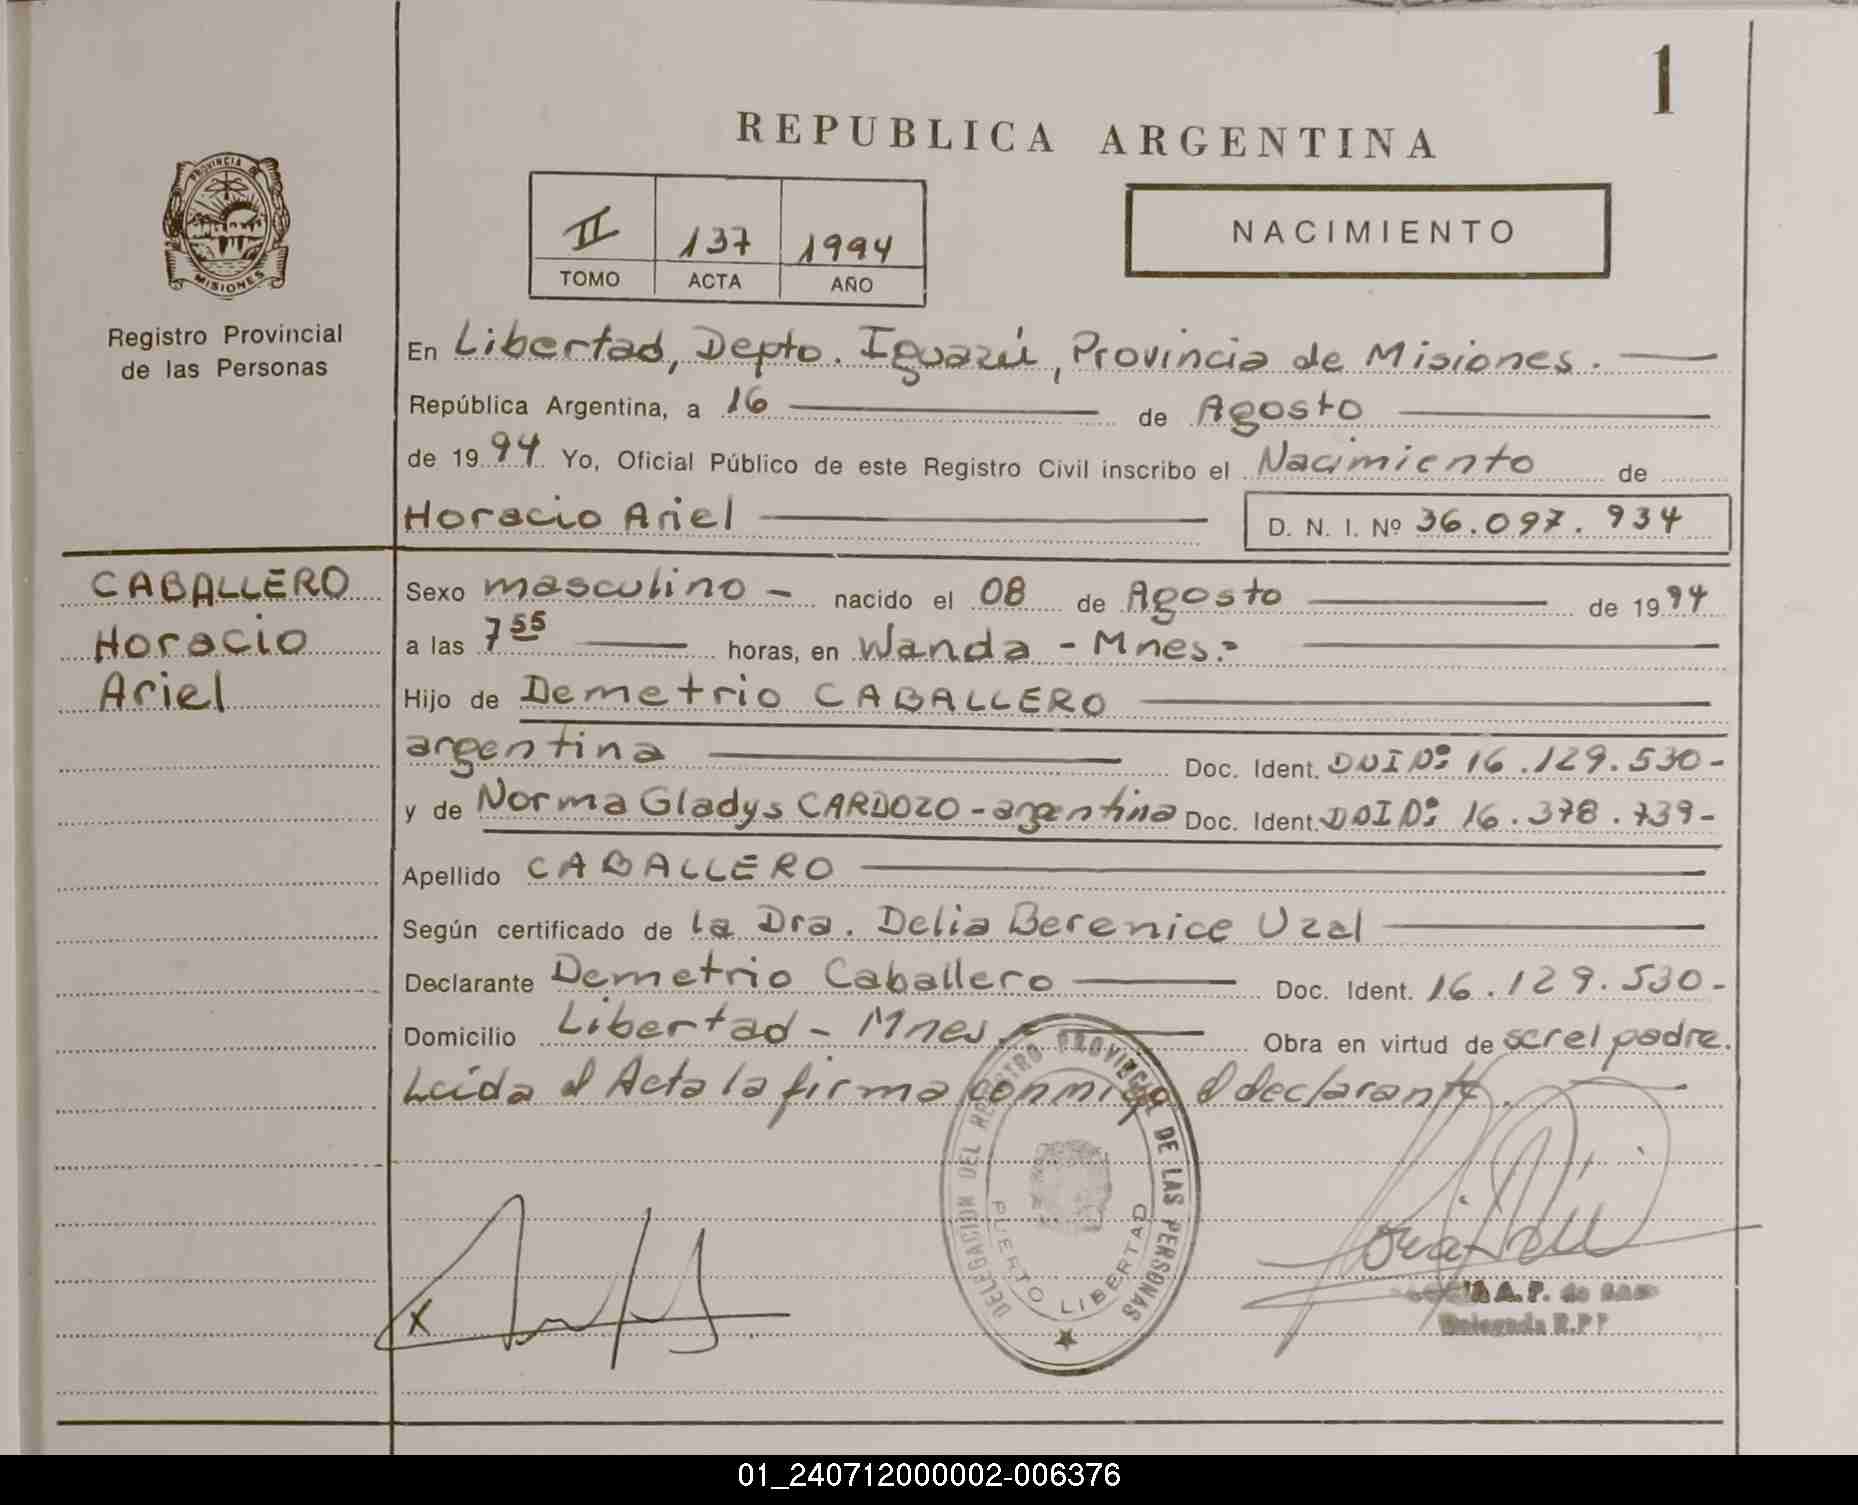 1
REPUBLICA ARGENTINA
PROVINCIA DE MISIONES
II 137 1994
TOMO ACTA AÑO
NACIMIENTO
Registro Provincial
de las Personas
En Libertad, Depto. Iguazú, Provincia de Misiones.
República Argentina, a 16 de Agosto
de 1994 Yo, Oficial Público de este Registro Civil inscribo el Nacimiento de
Horacio Ariel D. N. I. Nº 36.097.934
CABALLERO
Horacio
Ariel
Sexo masculino - nacido el 08 de Agosto de 1994
a las 7 55 horas, en Wanda - Mnes.-
Hijo de Demetrio CABALLERO
argentina Doc. Ident. DNI Nº 16.129.530-
y de Norma Gladys CARDOZO - argentina Doc. Ident. DNI Nº 16.378.739-
Apellido CABALLERO
Según certificado de la Dra. Delia Berenice Uzal
Declarante Demetrio Caballero Doc. Ident. 16.129.530-
Domicilio Libertad - Mnes. Obra en virtud de ser el padre.
Leída el Acta la firma conmigo el declarante.
DELEGACION DEL REGISTRO PROVINCIAL DE LAS PERSONAS
PUERTO LIBERTAD
X
A. P. de
Delegada R.P.P
01_240712000002-006376